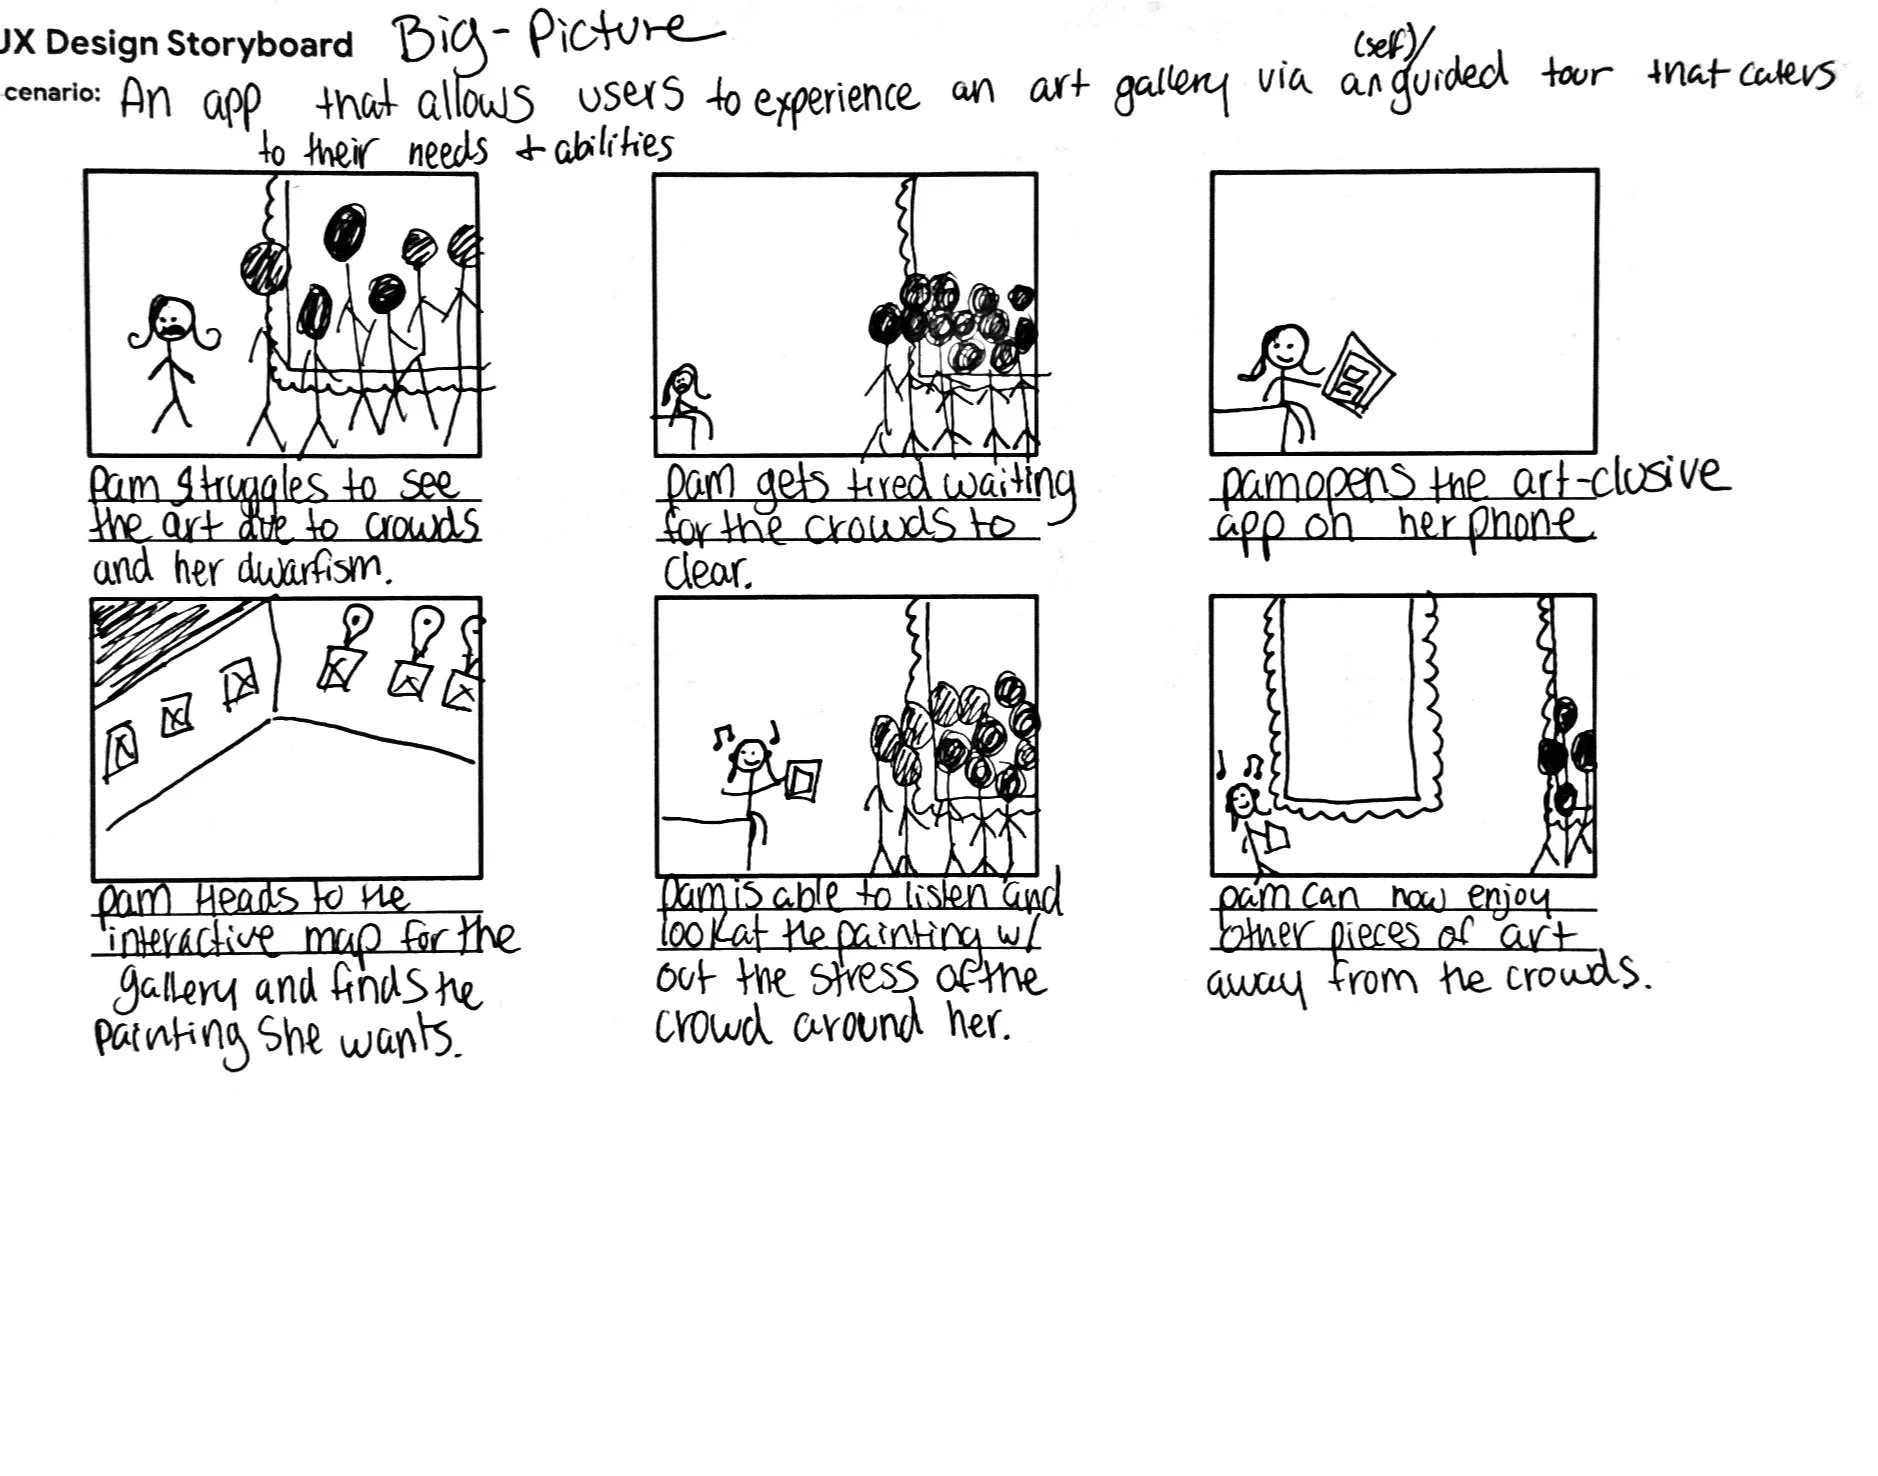 UX Design Storyboard Big-Picture
cenario: An app that allows users to experience an art gallery via an (self)/guided tour that caters
to their needs + abilities
Pam struggles to see
the art due to crowds
and her dwarfism.
Pam gets tired waiting
for the crowds to
clear.
Pam opens the art-clusive
app on her phone
Pam Heads to the
interactive map for the
gallery and finds the
painting She wants.
Pam is able to listen and
look at the painting w/
out the stress of the
crowd around her.
Pam can now enjoy
other pieces of art
away from the crowds.